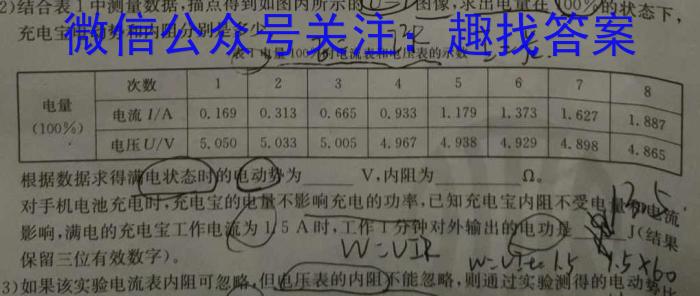 2)结合表1中测量数据,描点得到如图丙所示的U—I图像,求出电量在100%的状态下,
充电宝的电动势和内阻分别是多少
微信公众号关注：趣找答案
表1 电量100%时电流表和电压表的示数
电量(100%) 次数 1 2 3 4 5 6 7 8
电流I/A 0.169 0.313 0.665 0.933 1.179 1.373 1.627 1.887
电压U/V 5.050 5.033 5.005 4.967 4.938 4.929 4.898 4.865
根据数据求得满电状态时的电动势为 V,内阻为 Ω。
对手机电池充电时,充电宝的电量不影响充电的功率,已知充电宝内阻不受电量和电流
影响,满电的充电宝工作电流为1.5 A时,工作1分钟对外输出的电功是 J(结果
保留三位有效数字)。
W=UIt
1.5×60
3)如果该实验电流表内阻可忽略,但电压表的内阻不能忽略,则通过实验测得的电动势比